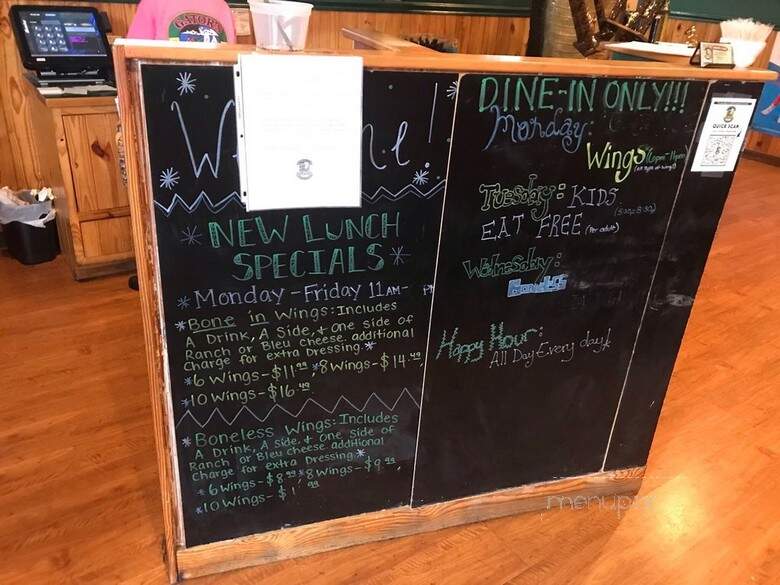 GATOR'S
NEW LUNCH
SPECIALS
Monday - Friday 11AM-
*Bone in Wings: Includes
A Drink, A Side, + one side of
Ranch or Bleu cheese. additional
charge for extra Dressing.*
*6 Wings-$11.99 *8 Wings-$14.49
*10 Wings-$16.49
*Boneless Wings: Includes
A Drink, A Side, + one side of
Ranch or Bleu cheese additional
charge for extra Dressing.*
*6 Wings-$8.99 *8 Wings-$9.99
*10 Wings-$1 .99
DINE-IN ONLY!!!
Monday:
Wings
Tuesday: KIDS
EAT FREE (Per adult)
Wednesday:
Happy Hour:
All Day Every day!
QUICK SCAN
menupix